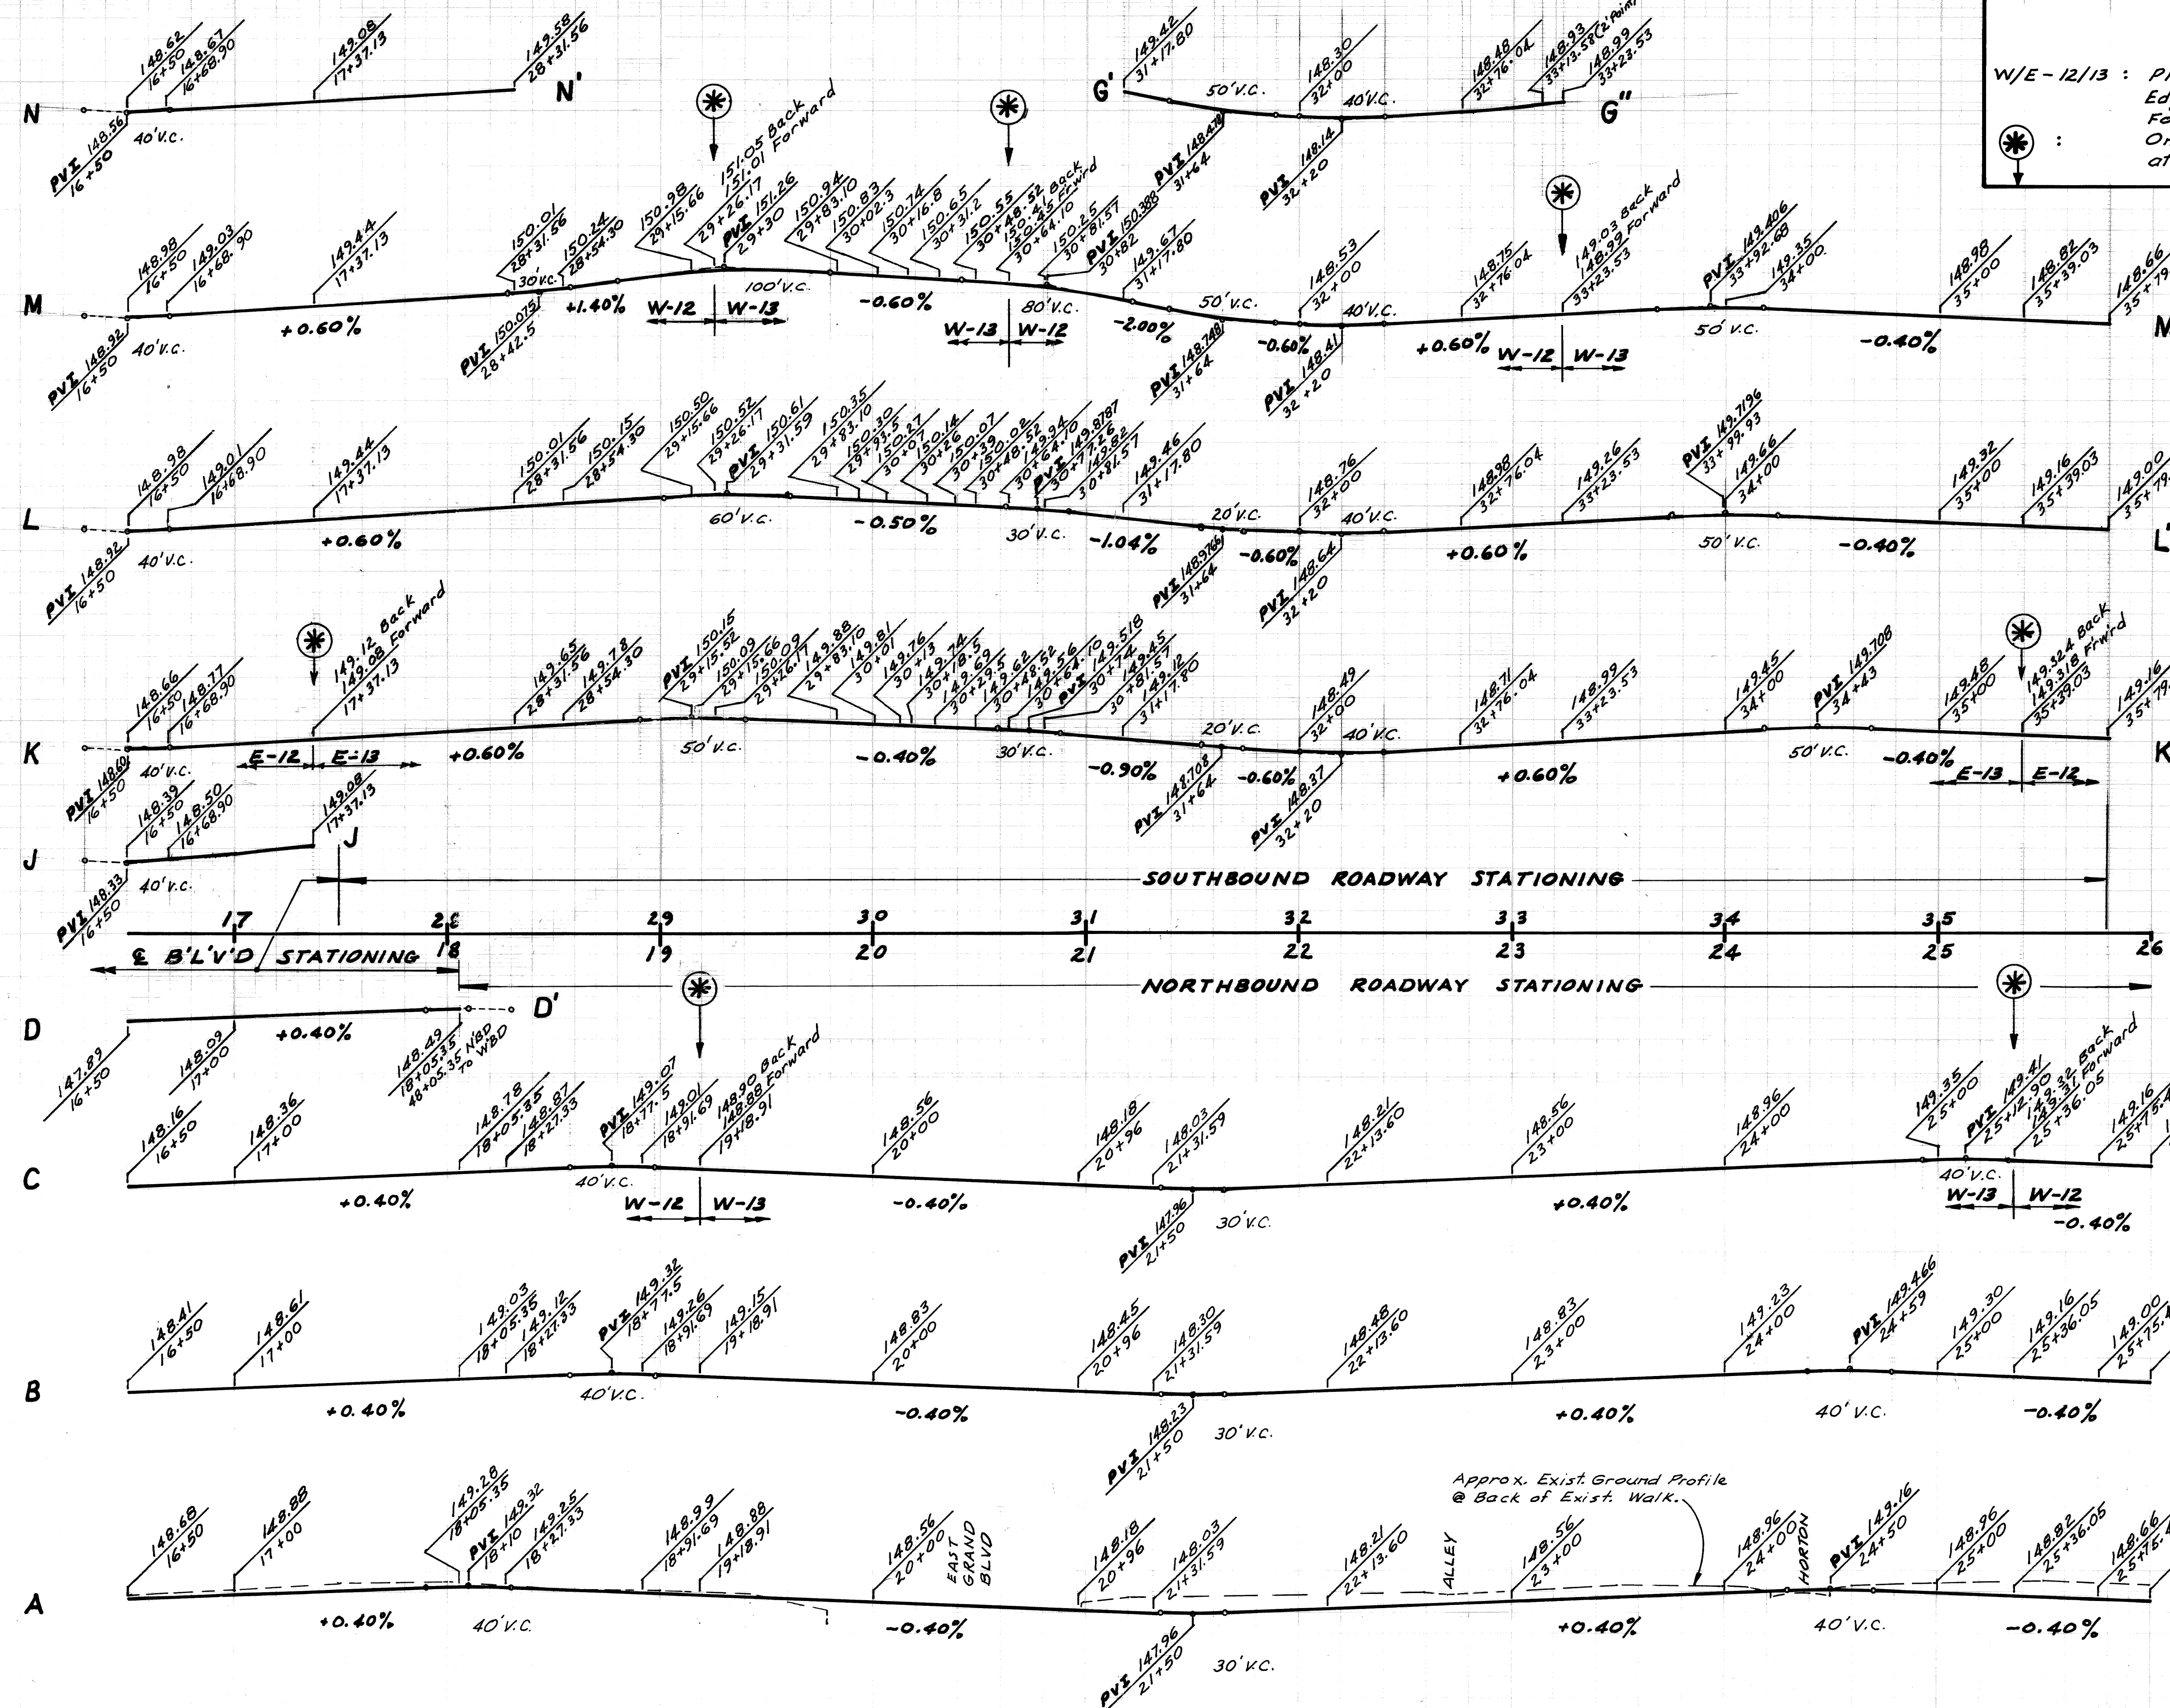 N
148.62
16+50
148.67
16+68.90
149.08
17+37.13
149.58
28+31.56
N'
PVI 148.56
16+50
40'V.C.
G'
149.42
31+17.80
50'V.C.
148.30
32+00
40'V.C.
148.48
32+76.04
148.93
33+13.58 (2' Point)
148.99
33+23.53
G"
PVI 148.478
31+64
PVI 148.14
32+20
W/E-12/13 :
:
M
148.98
16+50
149.03
16+68.90
149.44
17+37.13
150.01
28+31.56
150.24
28+54.30
150.98
29+15.66
151.05 Back
151.01 Forward
29+26.17
PVI 151.26
29+30
150.94
29+83.10
150.83
30+02.3
150.74
30+16.8
150.65
30+31.2
150.55
30+48.52
150.47 Back
150.45 Frwrd
30+64.10
150.25
30+81.57
PVI 150.388
30+82
149.67
31+17.80
148.53
32+00
148.75
32+76.04
149.03 Back
148.99 Forward
33+23.53
PVI 149.406
33+92.68
149.35
34+00
148.98
35+00
148.82
35+39.03
148.66
35+79
PVI 148.92
16+50
40'V.C.
+0.60%
PVI 150.075
28+42.5
30'V.C.
+1.40%
W-12 W-13
100'V.C.
-0.60%
W-13 W-12
80'V.C.
-2.00%
50'V.C.
PVI 148.748
31+64
-0.60%
PVI 148.41
32+20
40'V.C.
+0.60%
W-12 W-13
50'V.C.
-0.40%
M
L
148.98
16+50
149.01
16+68.90
149.44
17+37.13
150.01
28+31.56
150.15
28+54.30
150.50
29+15.66
150.52
29+26.17
PVI 150.61
29+31.59
150.35
29+83.10
150.30
29+93.5
150.27
30+07
150.14
30+26
150.07
30+39
150.02
30+48.52
149.94
30+64.10
PVI 149.8787
30+77.26
149.82
30+81.57
149.46
31+17.80
148.76
32+00
148.98
32+76.04
149.26
33+23.53
PVI 149.7196
33+99.93
149.66
34+00
149.32
35+00
149.16
35+39.03
149.00
35+79.
PVI 148.92
16+50
40'V.C.
+0.60%
60'V.C.
-0.50%
30'V.C.
-1.04%
20'V.C.
PVI 148.9766
31+64
-0.60%
PVI 148.64
32+20
40'V.C.
+0.60%
50'V.C.
-0.40%
L'
K
148.66
16+50
148.77
16+68.90
149.12 Back
149.08 Forward
17+37.13
149.65
28+31.56
149.78
28+54.30
PVI 150.15
29+15.52
150.09
29+15.66
150.09
29+26.17
149.88
29+83.10
149.81
30+01
149.76
30+13
149.74
30+18.5
149.69
30+29.5
149.62
30+48.52
149.56
30+64.10
PVI 149.518
30+74
149.45
30+81.57
149.12
31+17.80
148.49
32+00
148.71
32+76.04
148.99
33+23.53
149.45
34+00
PVI 149.708
34+43
149.48
35+00
149.324 Back
149.318 Frwrd
35+39.03
149.16
35+79.
PVI 148.60
16+50
40'V.C.
E-12 E-13
+0.60%
50'V.C.
-0.40%
30'V.C.
-0.90%
20'V.C.
PVI 148.708
31+64
-0.60%
PVI 148.37
32+20
40'V.C.
+0.60%
50'V.C.
-0.40%
E-13 E-12
K
J
148.39
16+50
148.50
16+68.90
149.08
17+37.13
J
PVI 148.33
16+50
40'V.C.
SOUTHBOUND ROADWAY STATIONING
17 28 29 30 31 32 33 34 35
18 19 20 21 22 23 24 25 26
℄ B'L'V'D STATIONING
NORTHBOUND ROADWAY STATIONING
D
D'
+0.40%
147.89
16+50
148.09
17+00
148.49
18+05.35
48+05.35 N'BD
TO W'BD
C
148.16
16+50
148.36
17+00
148.78
18+05.35
148.87
18+27.33
PVI 149.07
18+77.5
149.01
18+91.69
148.90 Back
148.88 Forward
19+18.91
148.56
20+00
148.18
20+96
148.03
21+31.59
148.21
22+13.60
148.56
23+00
148.96
24+00
149.35
25+00
PVI 149.41
25+12.90
149.32 Back
149.31 Forward
25+36.05
149.16
25+75.4
+0.40%
40'V.C.
W-12 W-13
-0.40%
PVI 147.96
21+50
30'V.C.
+0.40%
40'V.C.
W-13 W-12
-0.40%
B
148.41
16+50
148.61
17+00
149.03
18+05.35
149.12
18+27.33
PVI 149.32
18+77.5
149.26
18+91.69
149.15
19+18.91
148.83
20+00
148.45
20+96
148.30
21+31.59
148.48
22+13.60
148.83
23+00
149.23
24+00
PVI 149.466
24+59
149.30
25+00
149.16
25+36.05
149.00
25+75.4
+0.40%
40'V.C.
-0.40%
PVI 148.23
21+50
30'V.C.
+0.40%
40'V.C.
-0.40%
Approx. Exist. Ground Profile
@ Back of Exist. Walk.
A
148.68
16+50
148.88
17+00
149.28
18+05.35
PVI 149.32
18+10
149.25
18+27.33
148.99
18+91.69
148.88
19+18.91
148.56
20+00
EAST
GRAND
BLVD
148.18
20+96
148.03
21+31.59
148.21
22+13.60
ALLEY
148.56
23+00
148.96
24+00
HORTON
PVI 149.16
24+50
148.96
25+00
148.82
25+36.05
148.66
25+75.4
+0.40%
40'V.C.
-0.40%
PVI 147.96
21+50
30'V.C.
+0.40%
40'V.C.
-0.40%